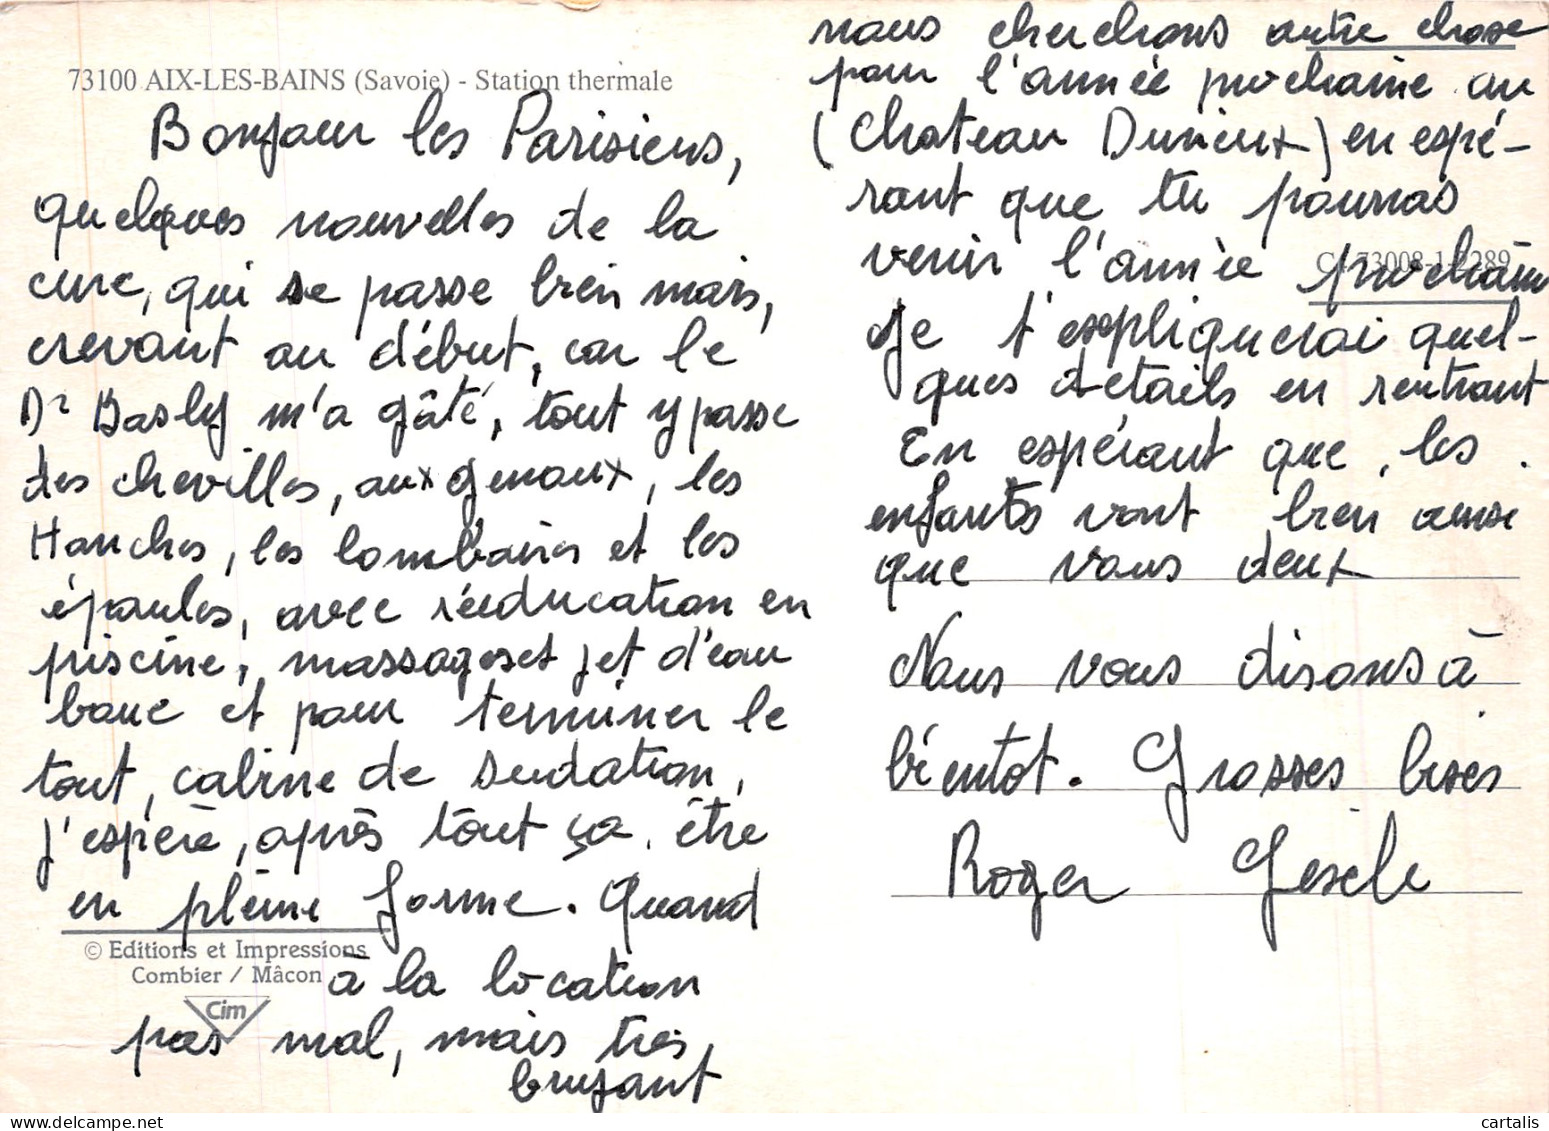 73100 AIX-LES-BAINS (Savoie) - Station thermale
Bonjour les Parisiens,
quelques nouvelles de la
cure, qui se passe bien mais,
crevant au début, car le
Dr Basly m'a gâté, tout y passe
des chevilles, aux genoux, les
Hanches, les lombaires et les
épaules, avec rééducation en
piscine, massages et jet d'eau
boue et pour terminer le
tout, cabine de sudation,
j'espère, après tout ça. être
en pleine forme. Quand
© Editions et Impressions
Combier / Mâcon
Cim
à la location
pas mal, mais très,
bruyant
nous cherchons autre chose
pour l'année prochaine au
(chateau Durieux) en espé-
rant que tu pourras
venir l'année prochaine
CI 73008-1-0289
Je t'expliquerai quel-
ques details en rentrant
En espérant que, les
enfants vont bien ainsi
que vous deux
Nous vous disons à
bientot. Grosses bises
Roger Gisèle
cartalis